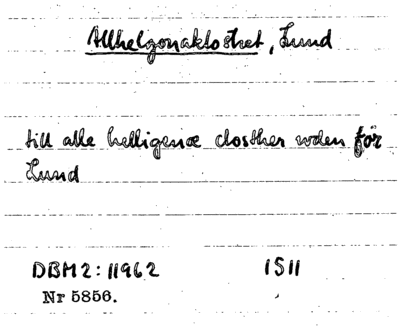 Allhelgonaklostret, Lund
till alle helligenæ closther wden för
Lund
DBM2: 11962 1511
Nr 5856.